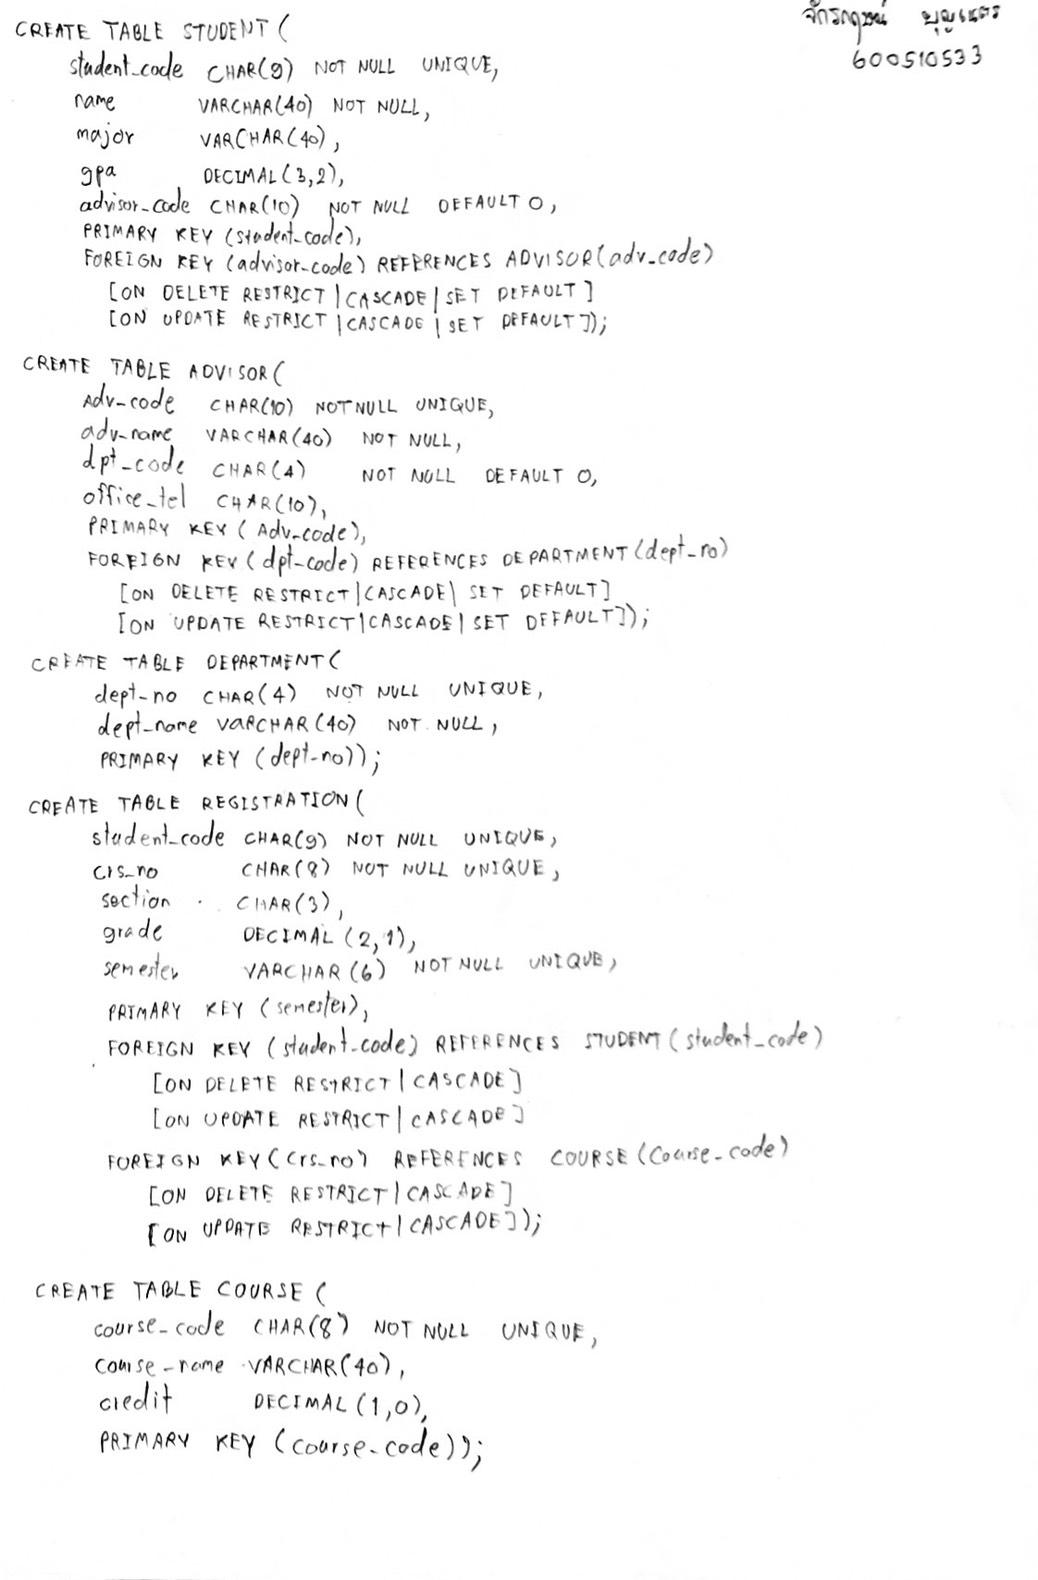 จักรกฤษณ์ บุญเนตร
600510533
CREATE TABLE STUDENT (
student_code CHAR(9) NOT NULL UNIQUE,
name VARCHAR(40) NOT NULL,
major VARCHAR(40),
gpa DECIMAL(3,2),
advisor_code CHAR(10) NOT NULL DEFAULT 0,
PRIMARY KEY (student_code),
FOREIGN KEY (advisor_code) REFERENCES ADVISOR(adv_code)
[ON DELETE RESTRICT|CASCADE|SET DEFAULT]
[ON UPDATE RESTRICT|CASCADE|SET DEFAULT]);
CREATE TABLE ADVISOR(
Adv_code CHAR(10) NOT NULL UNIQUE,
adv_name VARCHAR(40) NOT NULL,
dpt_code CHAR(4) NOT NULL DEFAULT 0,
office_tel CHAR(10),
PRIMARY KEY (Adv_code),
FOREIGN KEY (dpt_code) REFERENCES DEPARTMENT(dept_no)
[ON DELETE RESTRICT|CASCADE|SET DEFAULT]
[ON UPDATE RESTRICT|CASCADE|SET DEFAULT]);
CREATE TABLE DEPARTMENT(
dept_no CHAR(4) NOT NULL UNIQUE,
dept_name VARCHAR(40) NOT NULL,
PRIMARY KEY (dept_no));
CREATE TABLE REGISTRATION(
student_code CHAR(9) NOT NULL UNIQUE,
crs_no CHAR(8) NOT NULL UNIQUE,
section CHAR(3),
grade DECIMAL(2,1),
semester VARCHAR(6) NOT NULL UNIQUE,
PRIMARY KEY (semester),
FOREIGN KEY (student_code) REFERENCES STUDENT(student_code)
[ON DELETE RESTRICT|CASCADE]
[ON UPDATE RESTRICT|CASCADE]
FOREIGN KEY (crs_no) REFERENCES COURSE(course_code)
[ON DELETE RESTRICT|CASCADE]
[ON UPDATE RESTRICT|CASCADE]);
CREATE TABLE COURSE (
course_code CHAR(8) NOT NULL UNIQUE,
course_name VARCHAR(40),
credit DECIMAL(1,0),
PRIMARY KEY (course_code));